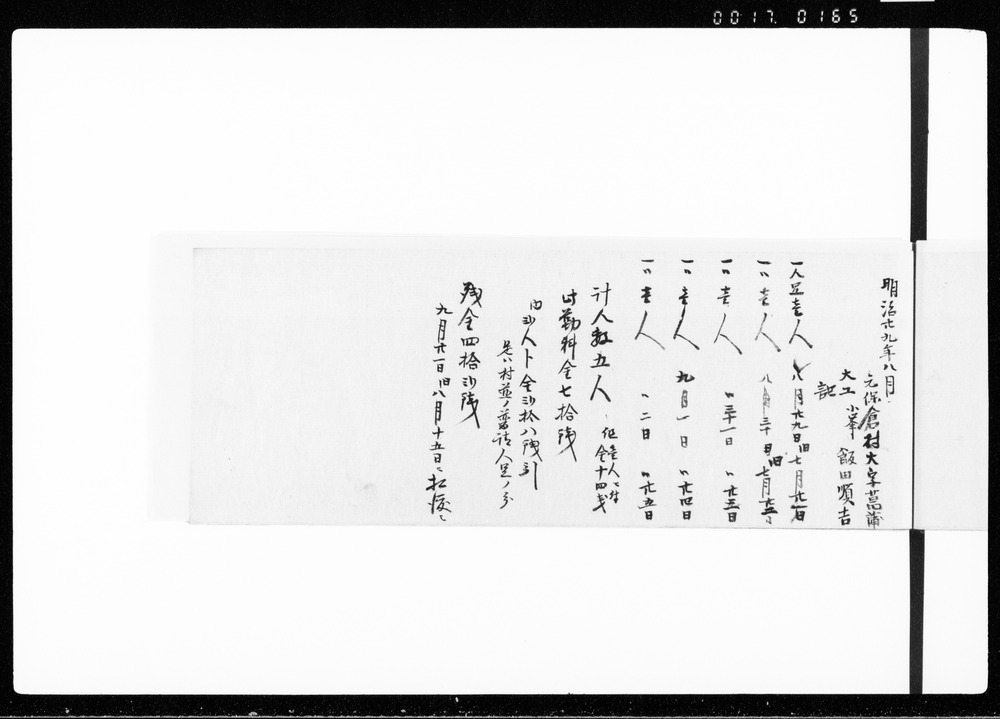 0017 0165
明治廿九年八月
元保倉村大字菖蒲
大工 小峯 飯田順吉
記
一人足壱人 八月廿九日旧七月廿一日
一〃壱人 八月三十日旧七月廿二日
一〃壱人 〃三十一日 〃廿三日
一〃壱人 九月一日 〃廿四日
一〃壱人 〃二日 〃廿五日
計人数五人 但壱人ニ付金十四戋
此勤料金七拾戋
内弐人卜金弐拾八戋引
是ハ村並ノ普請人足ノ分
残金四拾弐戋
九月廿一日旧八月十五日ニ払済